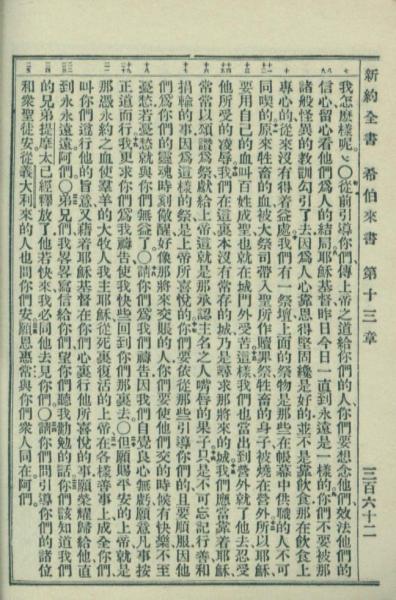 新約全書 希伯來書 第十三章 三百六十二
我怎麽樣呢。〇從前引導你們傳上帝之道給你們的人、你們要想念他們、效法他們的
信心、留心看他們爲人的結局。耶穌基督昨日今日一直到永遠是一樣的。你們不要被那
諸般怪異的教訓勾引了去、因爲人心靠恩得堅固纔是好的、並不是靠飲食、那在飲食上
專心的、從來沒有得着益處。我們有一祭壇、上面的祭物是那些在帳幕中供職的人不可
同喫的。原來牲畜的血被大祭司帶入聖所作贖罪祭、牲畜的身子被燒在營外。所以耶穌
要用自己的血叫百姓成聖、也就在城門外受苦。這樣我們也當出到營外就了他去、忍受
他所受的凌辱。我們在這裏本沒有常存的城、乃是尋求那將來的城。我們應當靠着耶穌、
常常以頌讚爲祭、獻給上帝、這就是那承認主名之人嘴唇的果子。只是不可忘記行善和
捐輸的事、因爲這樣的祭是上帝所喜悅的。你們要依從那些引導你們的、且要順服、因他
們爲你們的靈魂時刻儆醒、好像那將來交賬的人、你們要使他們交的時候有快樂、不至
憂愁、若憂愁就與你們無益了。〇請你們爲我們禱告、因我們自覺良心無虧、願意凡事按
正道而行。我更求你們爲我禱告、使我快些回到你們那裏去。〇但願賜平安的上帝、就是
那憑永約之血、使羣羊的大牧人我主耶穌、從死裏復活的上帝、在各樣善事上成全你們、
叫你們遵行他的旨意、又藉着耶穌基督在你們心裏行他所喜悅的事、願榮耀歸給他、直
到永永遠遠、阿們。〇弟兄們、我畧畧寫信給你們、望你們聽我勸勉的話。你們該知道我們
的兄弟提摩太已經釋放了、他若快來、我必同他去見你們。〇請你們問引導你們的諸位
和衆聖徒安。從義大利來的人也問你們安。願恩惠常與你們衆人同在。阿們。